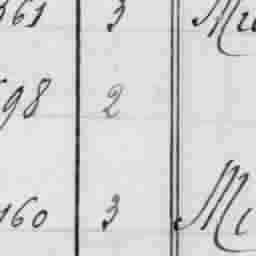 361 3 Mu
98 2
160 3 Mi